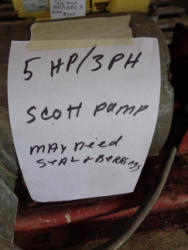 5 HP/3PH
Scott Pump
may need
SEAL + BEARINGS